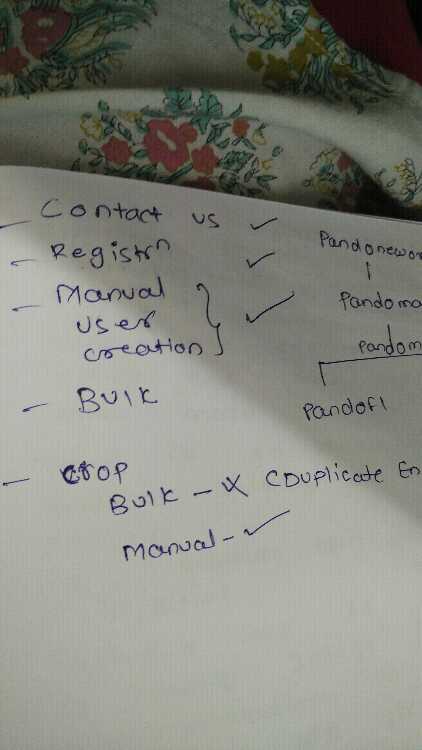 - Contact us ✓
- Registrn ✓
- Manual
user
creation } ✓
- Bulk
- crop
Bulk - X (Duplicate En
Manual - ✓
Pandonewor
Pandoma
Pandom
Pandofl